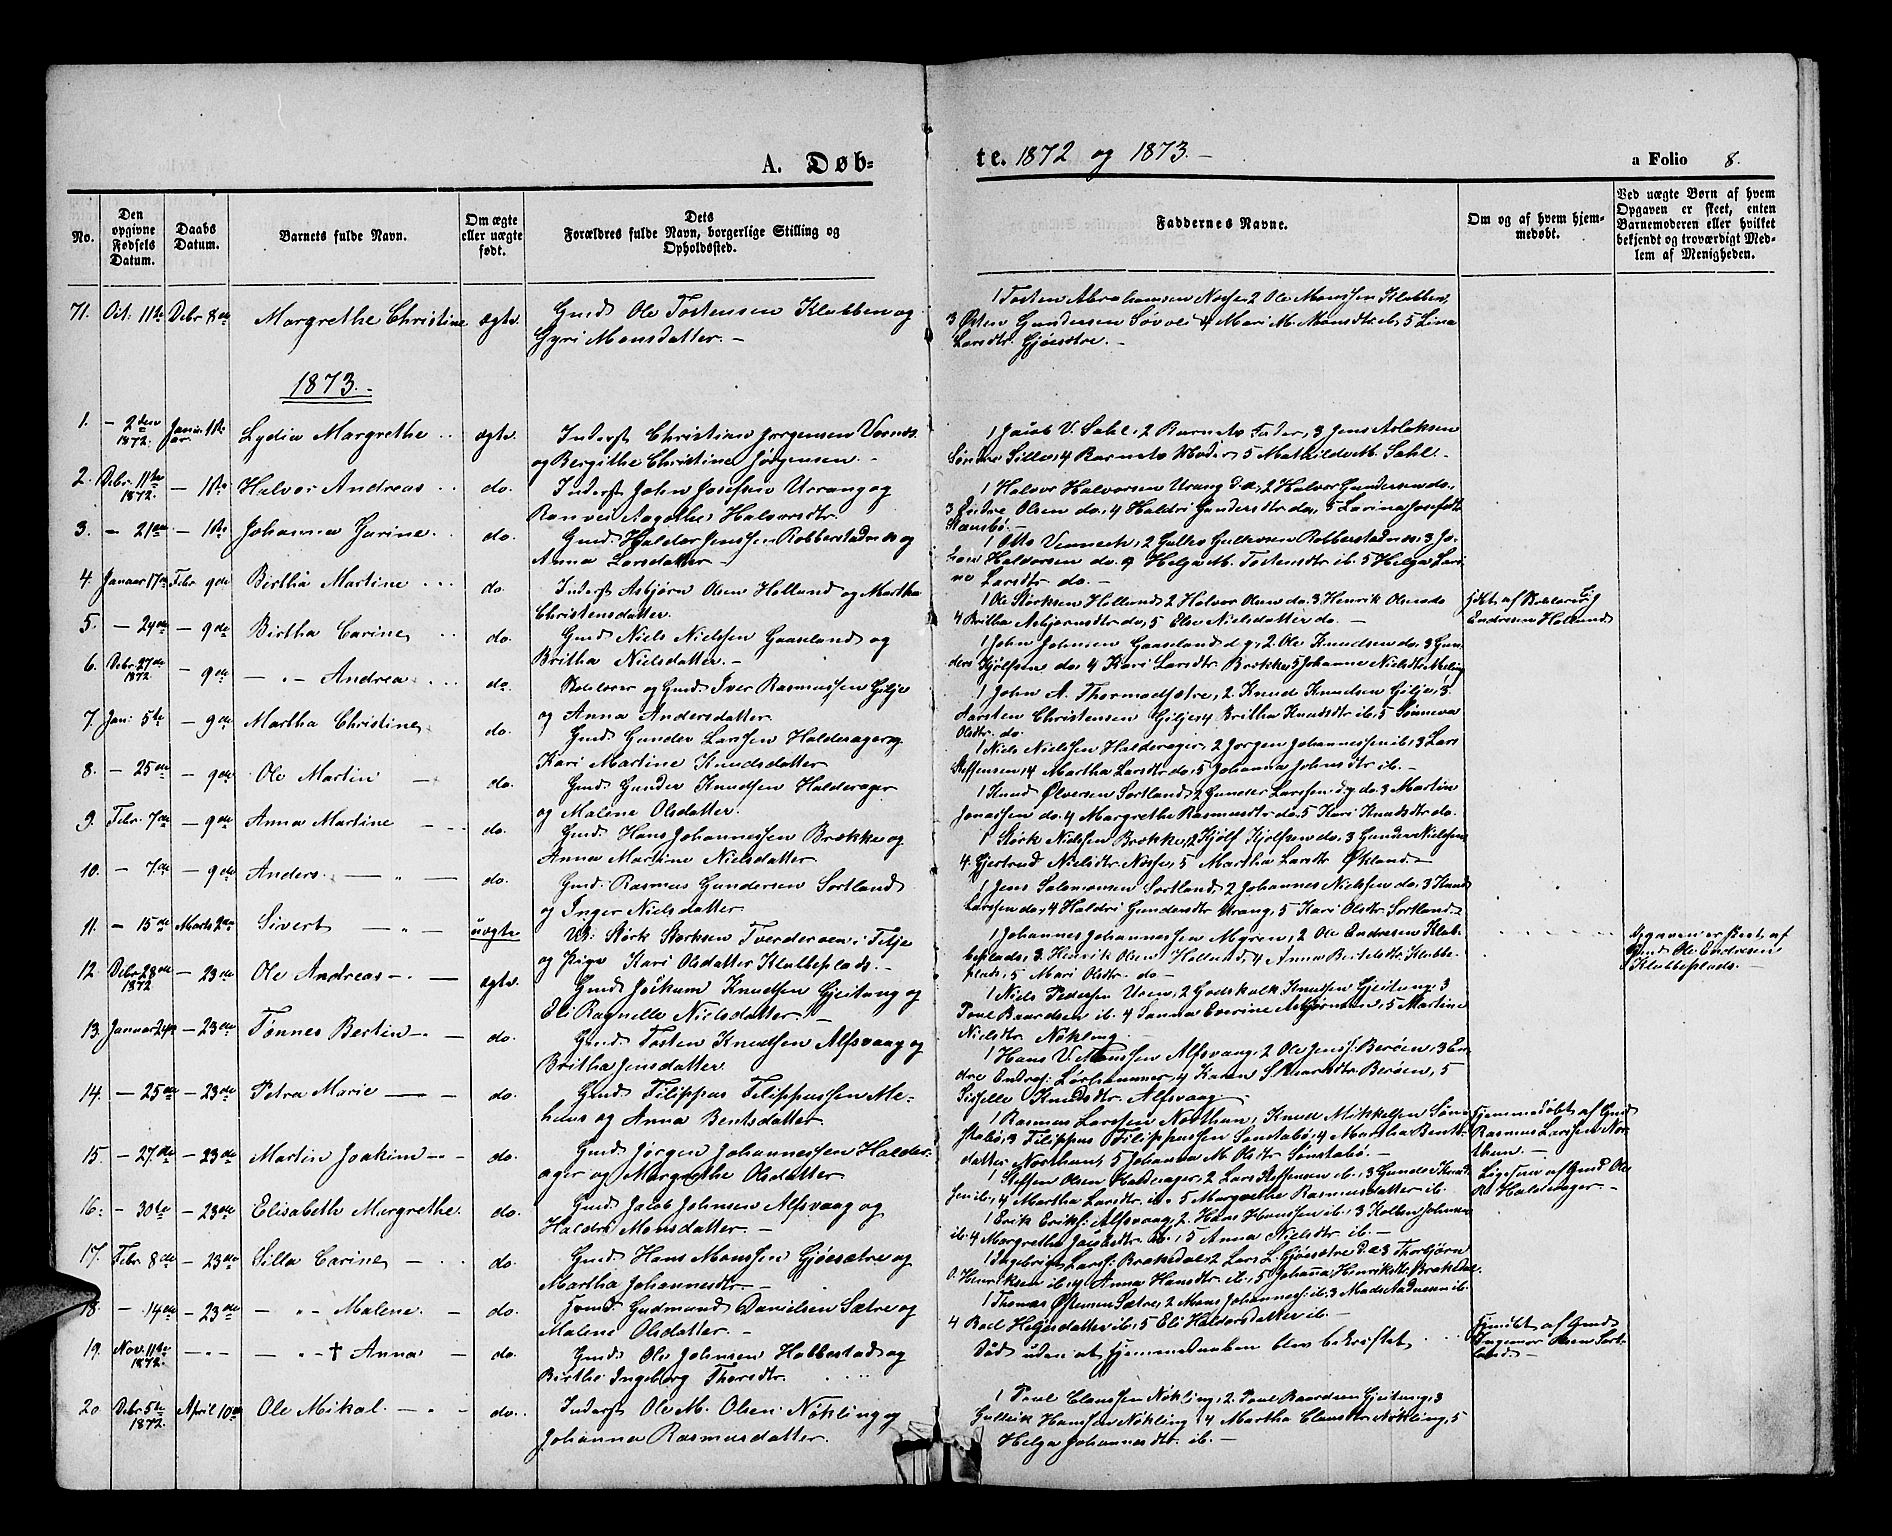 A. Døb-
te. 1872 og 1873. -
a Folio 8.
No.
Den opgivne Fødsels Datum.
Daabs Datum.
Barnets fulde Navn.
Om ægte eller uægte født.
Dets Forældres fulde Navn, borgerlige Stilling og Opholdssted.
Faddernes Navne.
Om og af hvem hjemmedøbt.
Ved uægte Børn af hvem Opgaven er skeet, enten Barnemoderen eller hvilket bekjendt og troværdigt Medlem af Menigheden.
71. Oct. 11te Debr 8de Margrethe Christine ægte. Gmd Ole Tostensen Klubben og
Gyri Monsdatter. -
1 Tosten Abrahamsen Nosse, 2 Ole Monssen Klubben,
3 Østen Gundersen 4 Mari M. Monsdtr ib, 5 Lina
Larsdtr. Gjøesetre. -
1873.
1. - 2den 1872. Januar 1te Lydia Margrethe ægte. Inderst Christian Jørgensen
og Bergithe Christine Jørgensen. -
1 Jacob V. Sahl, 2 Barnets Fader, 3 Jens Aslaksen
Søndre 4 Barnets Moder 5 Mathilde M. Sahl. -
2. Debr 11te 1872. - 1te Halvor Andreas do. Inderst John Josefsen Urang og
Ranvei Aagothe Halvorsdtr.
1 Halvor Halvorsen Urang d.æ, 2 Halvor Gundersen do,
3 Olsen do, 4 Haldri Gundersdtr do, 5 Larina Josefsdtr
3. - 21de - 1te Johanna Gurine do. Gmd. Haldor Jenssen Robberstadnes og
Anna Larsdatter. -
1 Otto 2 Gulle Gullevsen Robberstadnes, 3 Jo-
Haldorsen do. 4 Helga M. Tostensdtr ib. 5 Helga Lari-
ne Larsdtr do. -
4. Januar 17de Febr 9de Birtha Martine do. Inderst Asbjørn Olsen Holland og Martha
Christensdatter.
1 Ole Størksen Holland, 2 Halvor Olsen do. 3 Henrik Olsen do
4 Britha Asbjørnsdtr do, 5 Eli Nielsdatter do. -
af
Endresen Holland
5. - 24de - 9de Birtha Carine do. Gmd Niels Nielssen Gaasland og
Britha Nielsdatter. -
1 John Johnsen Gaasland d.y, 2 Ole Knudsen do, 3 Gun-
ders Kjølfsen do, 4 Kari Larsdtr Brække, 5 Johanne Nielsdtr
6. Debr. 27de 1872. - 9de - " - Andrea do. og Gmd. Iver Rasmussen Gilje
og Anna Andersdatter.
1 John A. Thormodsetre, 2 Knud Knudsen Gilje, 3
Karsten Christensen Gilje, 4 Britha Knudsdtr ib, 5 Sønneva
Olsdtr. do.
7. Jan: 5te - 9de Martha Christine do. Gmd Gunder Larssen Halderager og
Kari Martine Knudsdatter
1 Niels Nielssen Halderager, 2 Jørgen Johannessen ib, 3 Lars
Steffensen, 4 Martha Larsdtr do, 5 Johanna Johnsdtr ib. -
8. - 25de - 9de Ole Martin - do. Gmd Gunder Knudsen Halderager
og Malene Olsdatter.
1 Knud Ølversen Sortland, 2 Gunder Larssen d.y do. 3 Martin
Jonassen do. 4 Margrethe Rasmusdtr do, 5 Kari Knudsdtr do.
9. Febr. 7de - 9de Anna Martine - do. Gmd. Hans Johannessen Brække og
Anna Martine Nielsdatter
1 Størk Nielsen Brække, 2 Kjølf Kjølfsen do, 3 Gunder Nielsen
4. Gjertrud Nielsdtr Nosse, 5 Martha Larsdtr Økland -
10. - 7de - 9de Anders. - " - do. Gmd. Rasmus Gundersen Sortland
og Inger Nielsdatter.
1 Jens Salomonsen Sortland, 2 Johannes Nielsen do, 3 Knud
Larssen do, 4 Haldri Gundersdtr Urang, 5 Kari Olsdtr. Sortland
11. - 15de Marts 2den Sivert - " - uægte Størk Størksen i
og Pige Kari Olsdatter Klubbeplads. -
1 Johannes Johannessen Myren, 2 Ole Endresen Klub-
beplads, 3. Henrik Olsen Holland, 4 Anna Bertelsdtr. Klubbe-
plads, 5 Mari Olsdtr. do -
Opgaven er skeet af
Gmd Ole Endresen
Klubbeplads. -
12. Debr. 28de 1872 - 23de Ole Andreas - ægte. Gmd. Joakum Knudsen Gjeitung og
Eli Ragnelle Nielsdatter. -
1 Niels Pedersen Uren, 2 Godskalk Knudsen Gjeitung, 3
Poul Baardsen ib. 4 Sanna Everine Asbjørnsen, 5 Martine
Nielsdtr Nökling
13. Januar 24de - 23de Tønnes Bertin - do. Gmd Tosten Knudsen Alfsvaag og
Britha Jensdatter.
1 Hans V. Alfsvaag, 2 Ole Jenss: Berøen, 3 En-
dre Endres: 4 Karen Berøen, 5
Siselle Knudsdtr Alfsvaag -
14. - 25de - 23de Petra Marie - do. Gmd Filippus Filippussen Me-
haus og Anna Bentsdatter.
1 Rasmus Larssen Northun, Knud Mikkelsen
3 Filippus Filippussen 4 Martha Bents-
datter Northun, 5 Johanna M. Olsdtr
Hjemmedøbt af Gmd
Rasmus Larssen Nor-
thun. -
15. - 27de - 23de Martin Joakim - do. Gmd Jørgen Johannessen Halder-
ager og Margrethe Olsdatter
1 Steffen Olsen Halderager, 2 Lars Steffensen ib. 3 Gunder Knud-
sen ib, 4 Martha Larsdtr. ib. 5 Margrethe Rasmusdatter ib.
Ligesaa af Gmd Ole
R. Halderager. -
16. - 30te - 23de Elisabeth Margrethe. do. Gmd Jakob Johnsen Alfsvaag og
Haldri Monsdatter. -
1 Erik Eriks: Alfsvaag, 2. Hans Hanssen ib. 3 Kolben Johnsen
ib. 4 Margrethe Jacobsdtr ib, 5 Anna Nielsdtr ib. -
17. Febr. 8de - 23de Silla Carine - do. Gmd Hans Monssen Gjøesætre og
Martha Johannesdtr -
1 Ingebrigt Larss: Brakedal, 2 Lars L. Gjøesætre, 3 Thorbjørn
Henriksen ib, 4 Anna Hansdtr ib, 5 Johanna Henriksdtr. Brakedal
18. - 14de - 23de - " - Malene. - do. Gmd Gudmund Danielsen Sætre og
Malene Olsdatter. -
1 Thomas Østensen Sætre, 2 Mons Johanness: ib. 3 Mads Andersen ib.
4 Boel Helgesdatter ib, 5 Eli Haldorsdatter ib. -
19. Nov. 11te 1872. - " - - " - † Anna - do. Gmd Ole Johnsen Hobbestad og
Birthe Ingeborg Thorsdtr.
Død uden at Hjemmedaaben blev bekræftet
af Gmd
Ingemar Olsen Sort-
land -
20 Debr. 5te 1872. April 10de Ole Mikal. - do. Inderst Ole M. Olsen Nökling og
Johanna Rasmusdatter.
1 Poul Clausen Nökling, 2 Poul Baardsen Gjeitung, 3
Gullik Hanssen Nökling 4 Martha Clausdtr Nökling, 5
Helga Johannesdtr. ib. -